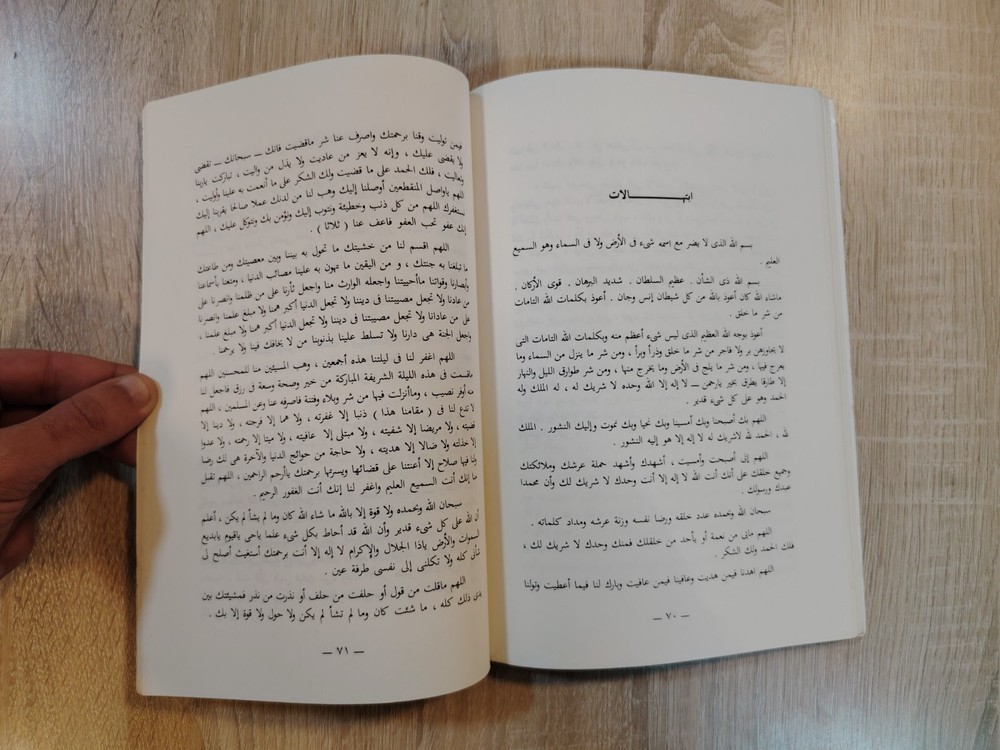 ابتهالات
بسم الله الذى لا يضر مع اسمه شىء فى الأرض ولا فى السماء وهو السميع
العليم .
بسم الله ذى الشأن . عظيم السلطان . شديد البرهان . قوى الأركان .
ماشاء الله كان أعوذ بالله من كل شيطان إنس وجان . أعوذ بكلمات الله التامات
من شر ما خلق .
أعوذ بوجه الله العظيم الذى ليس شىء أعظم منه وبكلمات الله التامات التى
لا يجاوزهن بر ولا فاجر من شر ما خلق وذرأ وبرأ ، ومن شر ما ينزل من السماء وما
يعرج فيها ، ومن شر ما يلج فى الأرض وما يخرج منها ، ومن شر طوارق الليل والنهار
إلا طارقا يطرق بخير يارحمن ــ لا إله إلا الله وحده لا شريك له ، له الملك وله
الحمد وهو على كل شىء قدير .
اللهم بك أصبحنا وبك أمسينا وبك نحيا وبك نموت وإليك النشور . الملك
لله ، الحمد لله لاشريك له لا إله إلا هو إليه النشور .
اللهم إنى أصبحت وأمسيت ، أشهدك وأشهد حملة عرشك وملائكتك
وجميع خلقك على أنك أنت الله لا إله إلا أنت وحدك لا شريك لك وأن محمدا
عبدك ورسولك .
سبحان الله وبحمده عدد خلقه ورضا نفسه وزنة عرشه ومداد كلماته .
اللهم مابى من نعمة أو بأحد من خلقك فمنك وحدك لا شريك لك ،
فلك الحمد ولك الشكر .
اللهم اهدنا فيمن هديت وعافينا فيمن عافيت وبارك لنا فيما أعطيت وتولنا
ــ ٧٠ ــ
فيمن توليت وقنا برحمتك واصرف عنا شر ماقضيت فانك ــ سبحانك ــ تقضى
ولا يقضى عليك ، وإنه لا يعز من عاديت ولا يذل من واليت ، تباركت ياربنا
وتعاليت ، فلك الحمد على ما قضيت ولك الشكر على ما أنعمت به علينا وأوليت ،
اللهم ياواصل المنقطعين أوصلنا إليك وهب لنا من لدنك عملا صالحا يقربنا إليك
نستغفرك اللهم من كل ذنب وخطيئة ونتوب إليك ونؤمن بك ونتوكل عليك ، اللهم
إنك عفو تحب العفو فاعف عنا ( ثلاثا ) .
اللهم اقسم لنا من خشيتك ما تحول به بيننا وبين معصيتك ومن طاعتك
ما تبلغنا به جنتك ، و من اليقين ما تهون به علينا مصائب الدنيا ، ومتعنا بأسماعنا
وأبصارنا وقواتنا ماأحييتنا واجعله الوارث منا واجعل ثأرنا على من ظلمنا وانصرنا على
من عادنا ولا تجعل مصيبتنا فى ديننا ولا تجعل الدنيا أكبر همنا ولا مبلغ علمنا وانصرنا
على من عادانا ولا تجعل مصيبتنا فى ديننا ولا تجعل الدنيا أكبر همنا ولا مبلغ علمنا ،
واجعل الجنة هى دارنا ولا تسلط علينا بذنوبنا من لا يخافك فينا ولا يرحمنا .
اللهم اغفر لنا فى ليلتنا هذه أجمعين ، وهب المسيئين منا للمحسنين اللهم
ماقسمت فى هذه الليلة الشريفة المباركة من خير وصحة وسعة فى رزق فاجعل لنا
منه أوفر نصيب ، وماأنزلت فيها من شر وبلاء وفتنة فاصرفه عنا وعن المسلمين ، اللهم
لا تدع لنا فى ( مقامنا هذا ) ذنبا إلا غفرته ، ولا هما إلا فرجته ، ولا دينا إلا
قضيته ، ولا مريضا إلا شفيته ، ولا مبتلى إلا عافيته ، ولا ميتا إلا رحمته ، ولا عدوا
إلا خذلته ولا ضالا إلا هديته ، ولا حاجة من حوائج الدنيا والآخرة هى لك رضا
ولنا فيها صلاح إلا أعنتنا على قضائها ويسرتها برحمتك ياأرحم الراحمين ، اللهم تقبل
منا إنك أنت السميع العليم واغفر لنا إنك أنت الغفور الرحيم .
سبحان الله وبحمده ولا قوة إلا بالله ما شاء الله كان وما لم يشأ لم يكن ، أعلم
أن الله على كل شىء قدير وأن الله قد أحاط بكل شىء علما ياحى ياقيوم يابديع
السموات والأرض ياذا الجلال والإكرام لا إله إلا أنت برحمتك أستغيث أصلح لى
شأنى كله ولا تكلنى إلى نفسى طرفة عين .
اللهم ماقلت من قول أو حلفت من حلف أو نذرت من نذر فمشيئتك بين
يدى ذلك كله ، ما شئت كان وما لم تشأ لم يكن ولا حول ولا قوة إلا بك .
ــ ٧١ ــ